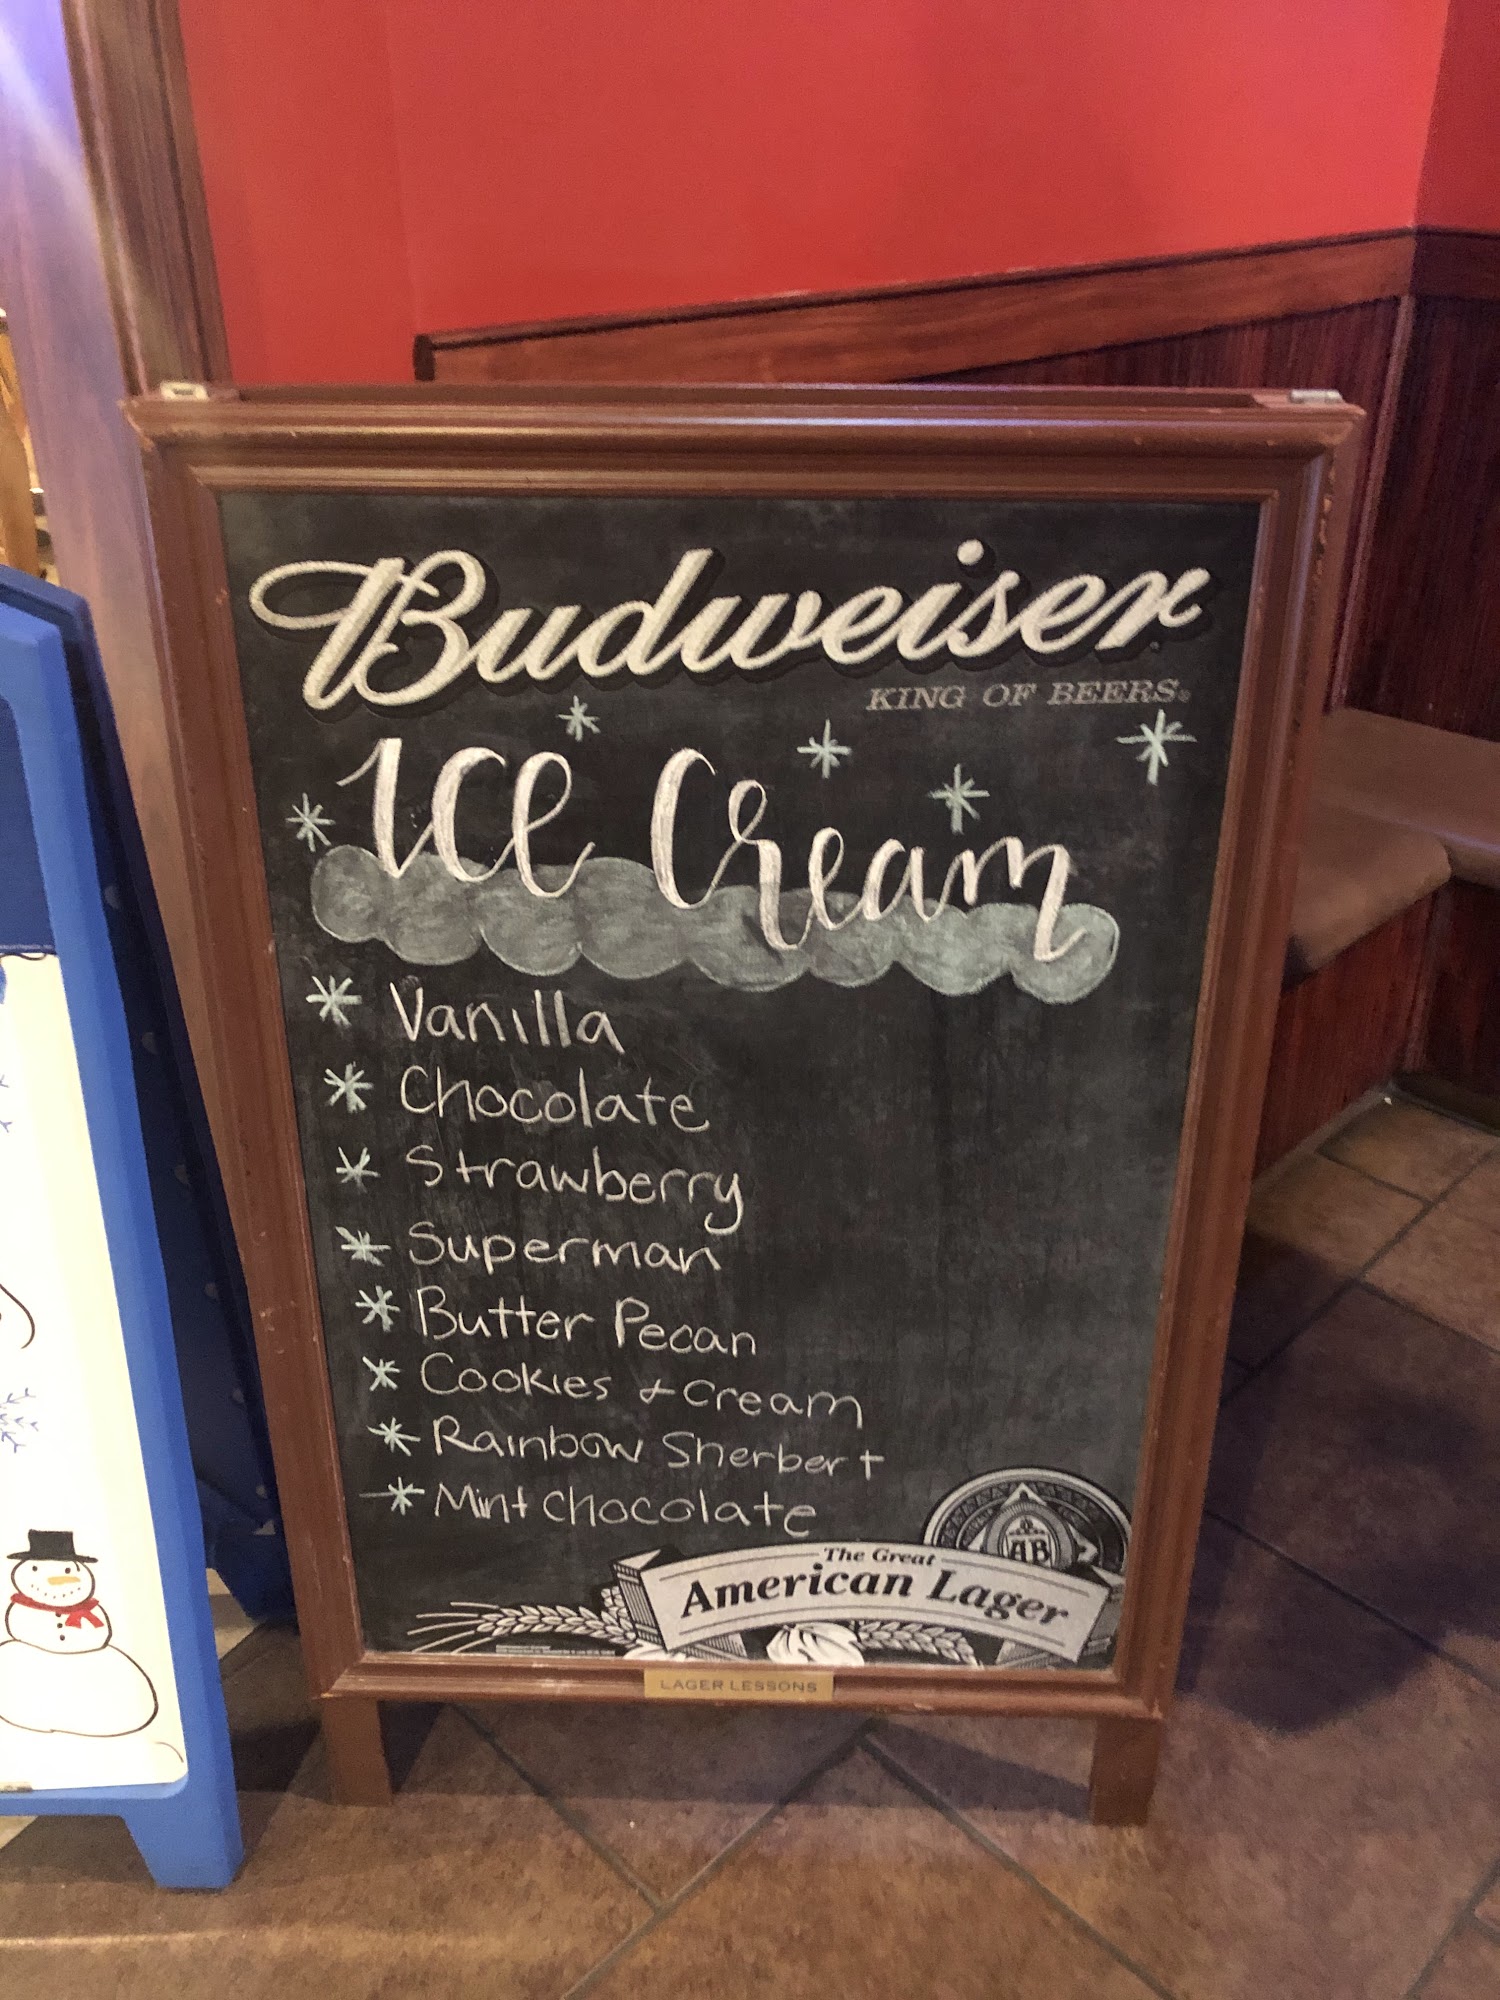 Budweiser
KING OF BEERS®
Ice Cream
Vanilla
Chocolate
Strawberry
Superman
Butter Pecan
Cookies & Cream
Rainbow Sherbert
Mint Chocolate
AB
The Great
American Lager
LAGER LESSONS